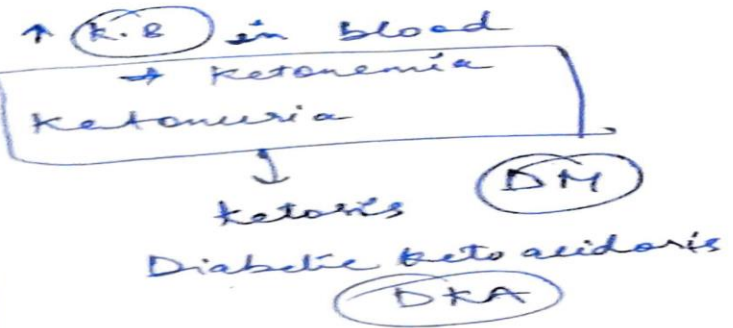 ↑ K.B in blood
→ Ketonemia
Ketonuria
↓
Ketosis DM
Diabetic keto acidosis
DKA